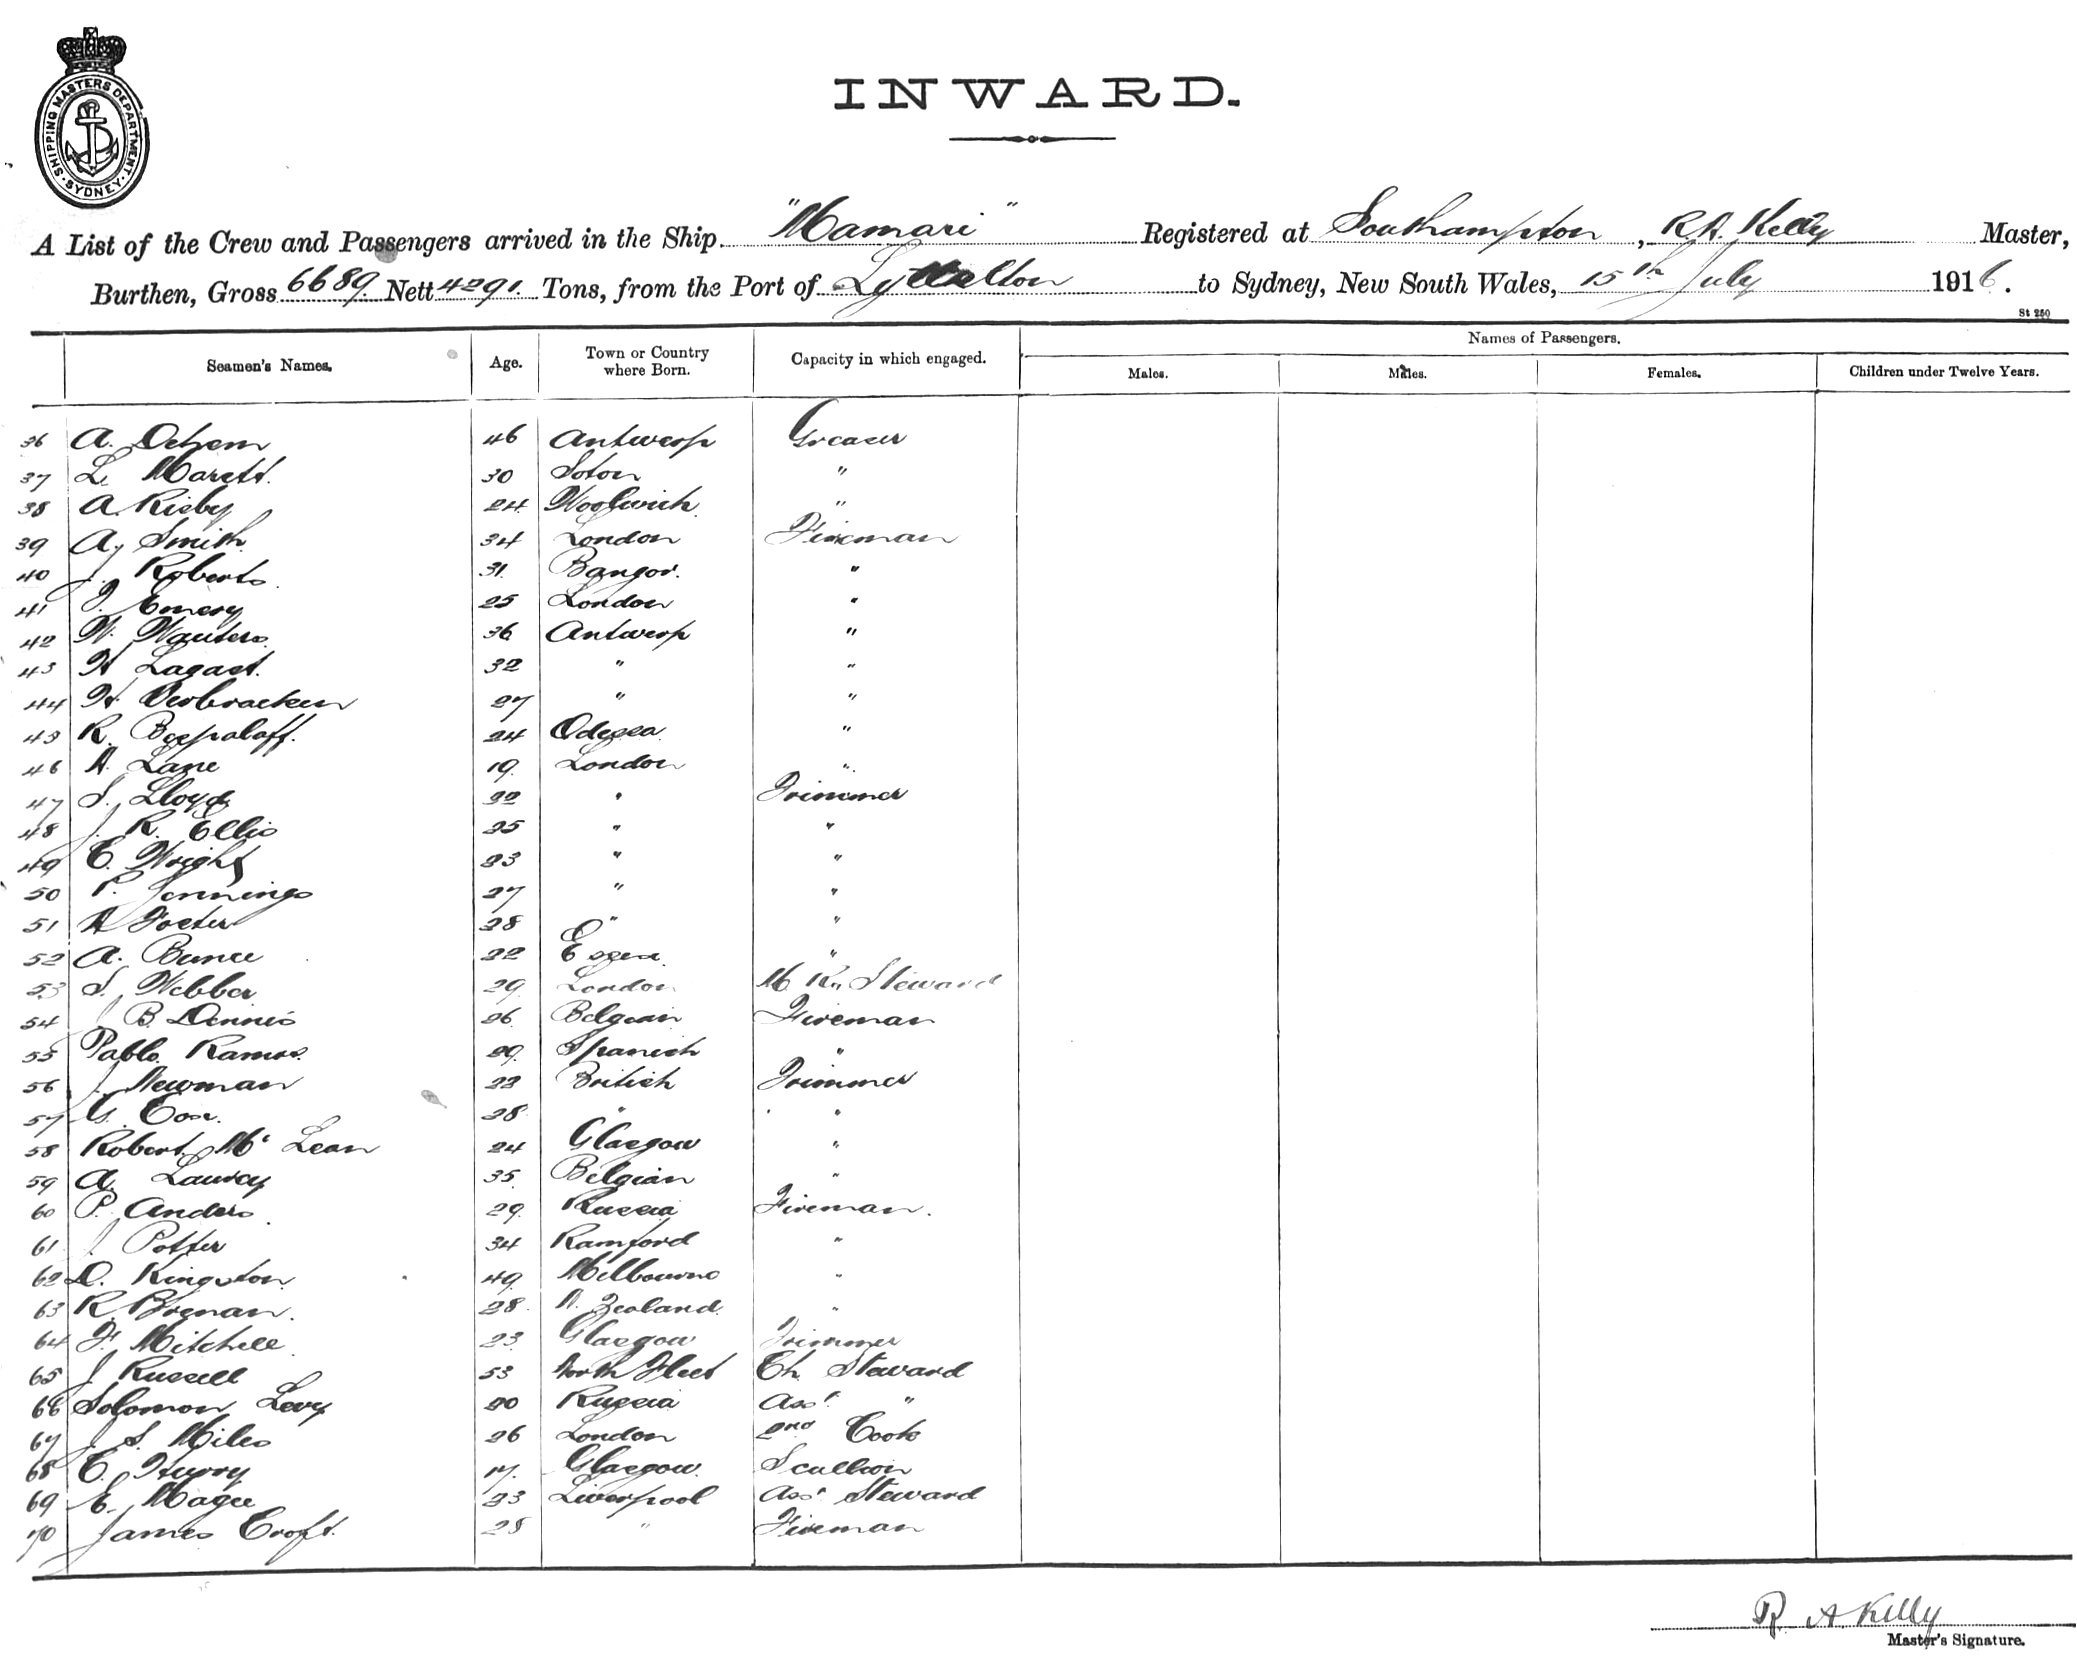 SHIPPING MASTERS DEPARTMENT. SYDNEY
INWARD.
A List of the Crew and Passengers arrived in the Ship "Mamari" Registered at Southampton, R.A. Kelly Master,
Burthen, Gross 6689 Nett 4291 Tons, from the Port of Lyttelton to Sydney, New South Wales, 15th July 1916.
St 250
Seamen's Names. Age. Town or Country where Born. Capacity in which engaged. Names of Passengers.
Males. Males. Females. Children under Twelve Years.
36 A. 46 Antwerp Greaser
37 L. Marett. 30 Soton "
38 A. Risby 24 Woolwich "
39 A. Smith 34 London Fireman
40 J. Roberts. 31. Bangor. "
41 J. Emery 25 London "
42 W. Wauters. 36 Antwerp "
43 H Lagast. 32 " "
44 H. Verbracken 27 " "
45 R. Bespaloff. 24 Odessa "
46 A. Lane 19. London "
47 S. Lloyd 22 " Trimmer
48 J. R. Ellis 25 " "
49 E. Wright 23 " "
50 P. Jennings 27 " "
51 A Foster 28 " "
52 A. Bunce 22 Essex. "
53 S. Webber 29 London M. R. Steward
54 J B. Dennis 26 Belgian Fireman
55 Pablo Ramos. 29. Spanish "
56 J. Newman 22 British Trimmer
57 G. Cox. 28 " "
58 Robert Mc Lean 24 Glasgow "
59 A. 35. Belgian "
60 P. Anders. 29. Russia Fireman.
61 J. Potter 34 Ramford "
62 D. Kingston. 49. Melbourne "
63 R. Brenan. 28 N. Zealand. "
64 F. Mitchell. 23. Glasgow Trimmer
65 J Russell 53 North Fleet Ch. Steward
66 Solomon Levy 20 Russia Asst "
67 J. S. Miles 26 London 2nd Cook
68 E. Hurry 17. Glasgow. Scullion
69 E. Magee 23 Liverpool Asst Steward
70 James Croft. 25 " Fireman
R. A. Kelly
Master's Signature.